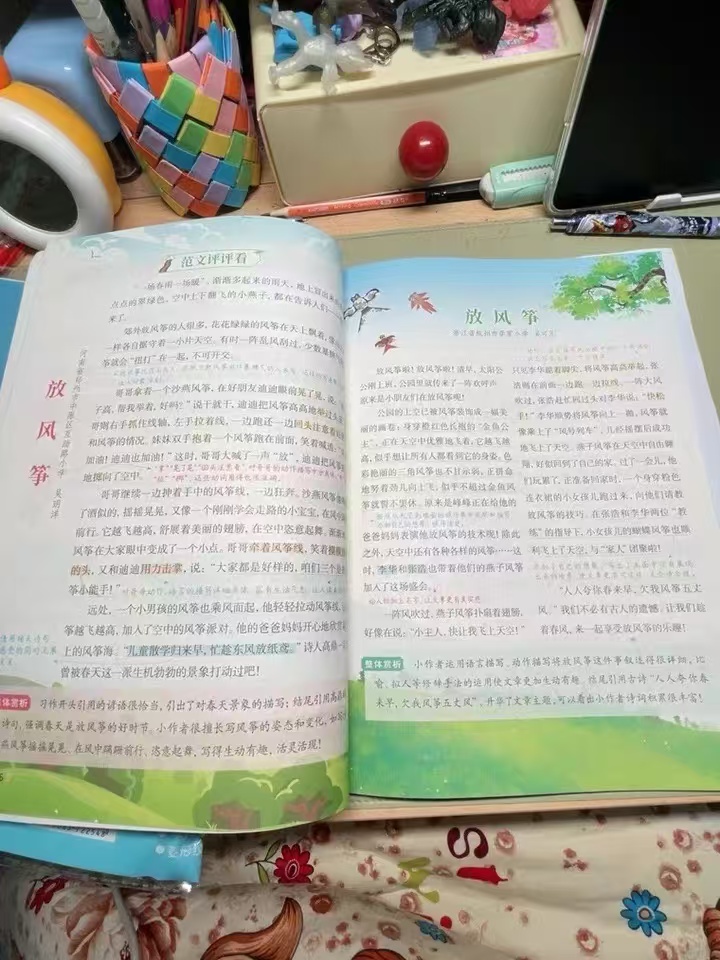 范文评评看
一场春雨一场暖”。渐渐多起来的雨天,地上冒出来
点点的翠绿色,空中上下翻飞的小燕子,都在告诉人们
来了。
郊外放风筝的人很多,花花绿绿的风筝在天上飘着,像
一样各自据守着一小片天空。有时一阵乱风刮过,少数
筝就会“掐打”在一起,不可开交。
哥哥拿着一个沙燕风筝,在好朋友迪迪眼前晃了晃,说
子高,帮我举着,好吗?”说干就干,迪迪把风筝高高地举过头
哥则右手抓住线轴,左手拉着线,一边跑还一边回头注意着
和风筝的情况。妹妹双手抱着一个风筝跑在前面,笑着喊道:
加油!迪迪也加油!”这时,哥哥大喊了一声“放”,迪迪把风筝
地掷向了空中。
哥哥继续一边拽着手中的风筝线,一边狂奔。沙燕风筝像
了酒似的,摇摇晃晃,又像一个刚刚学会走路的小宝宝,在风中
前行。它越飞越高,舒展着美丽的翅膀,在空中恣意起舞,渐渐
风筝在大家眼中变成了一个小点。哥哥牵着风筝线,笑着
的头,又和迪迪用力击掌,说:“大家都是好样的,咱们三个
筝小能手!”
远处,一个小男孩的风筝也乘风而起,他轻轻拉动风筝线,
筝越飞越高,加入了空中的风筝派对。他的爸爸妈妈开心地欣赏
上的风筝海。“儿童散学归来早,忙趁东风放纸鸢。”诗人高鼎
曾被春天这一派生机勃勃的景象打动过吧!
放风筝
体赏析
习作开头引用的谚语很恰当,引出了对春天景象的描写;结尾引用高鼎
诗句,强调春天是放风筝的好时节。小作者很擅长写风筝的姿态和变化,如写
燕风筝摇摇晃晃、在风中蹒跚前行、恣意起舞,写得生动有趣,活灵活现!
放风筝
放风筝啦!放风筝啦!清早,太阳公
公刚上班,公园里就传来了一阵欢呼声,
原来是小朋友们在放风筝呢!
公园的上空已被风筝装饰成一幅美
丽的画卷:身穿橙红色长袍的“金鱼公
主”,正在天空中优雅地飞着,它越飞越
高,似乎想让所有人都看到它的身姿。色
彩艳丽的三角风筝也不甘示弱,正拼命
地努着劲儿向上飞,似乎不超过金鱼风
筝就誓不罢休,原来是峰峰正在给他的
爸爸妈妈表演他放风筝的技术呢!除此
之外,天空中还有各种各样的风筝……这
时,李华和张浩也带着他们的燕子风筝
加入了这场盛会。
一阵风吹过,燕子风筝扑扇着翅膀,
好像在说:“小主人,快让我飞上天空!”
只见李华踮着脚尖,将风筝高高举起,张
浩则在前面一边跑,一边拉线。一阵大风
吹过,张浩赶忙回过头对李华说:“快松
手!”李华顺势将风筝向上一抛,风筝就
像乘上了“风号列车”,几经摇摆后成功
地飞上了天空。燕子风筝在天空中自由翱
翔,好似回到了自己的家。过了一会儿,他
们玩累了,正准备回家时,一个身穿粉色
连衣裙的小女孩儿跑过来,向他们请教
放风筝的技巧。在张浩和李华两位“教
练”的指导下,小女孩儿的蝴蝶风筝也顺
利飞上了天空,与“家人”团聚啦!
“人人夸你春来早,欠我风筝五丈
风。”我们不必有古人的遗憾,让我们趁
着春风,来一起享受放风筝的乐趣!
整体赏析
小作者运用语言描写、动作描写将放风筝这件事叙述得很详细,比
喻、拟人等修辞手法的运用使文章更加生动有趣。结尾引用古诗“人人夸你
春来早,欠我风筝五丈风”,升华了文章主题,可以看出小作者诗词积累很丰富!